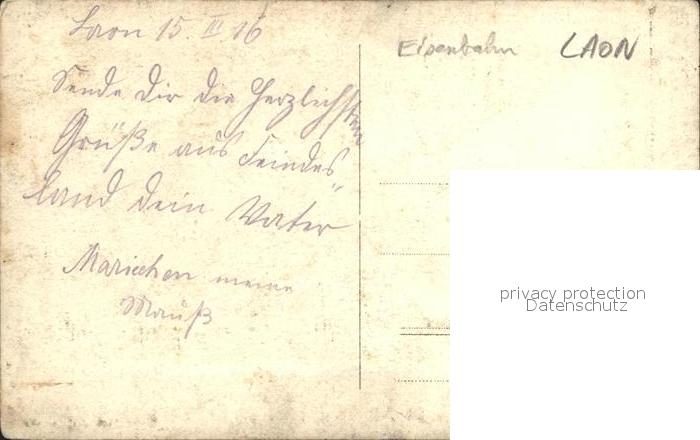 Laon 15. III 16
Sende dir die Herzlichsten
Grüße aus Feindes
land dein Vater
Mariechen meine
Mauß
Eisenbahn LAON
privacy protection
Datenschutz